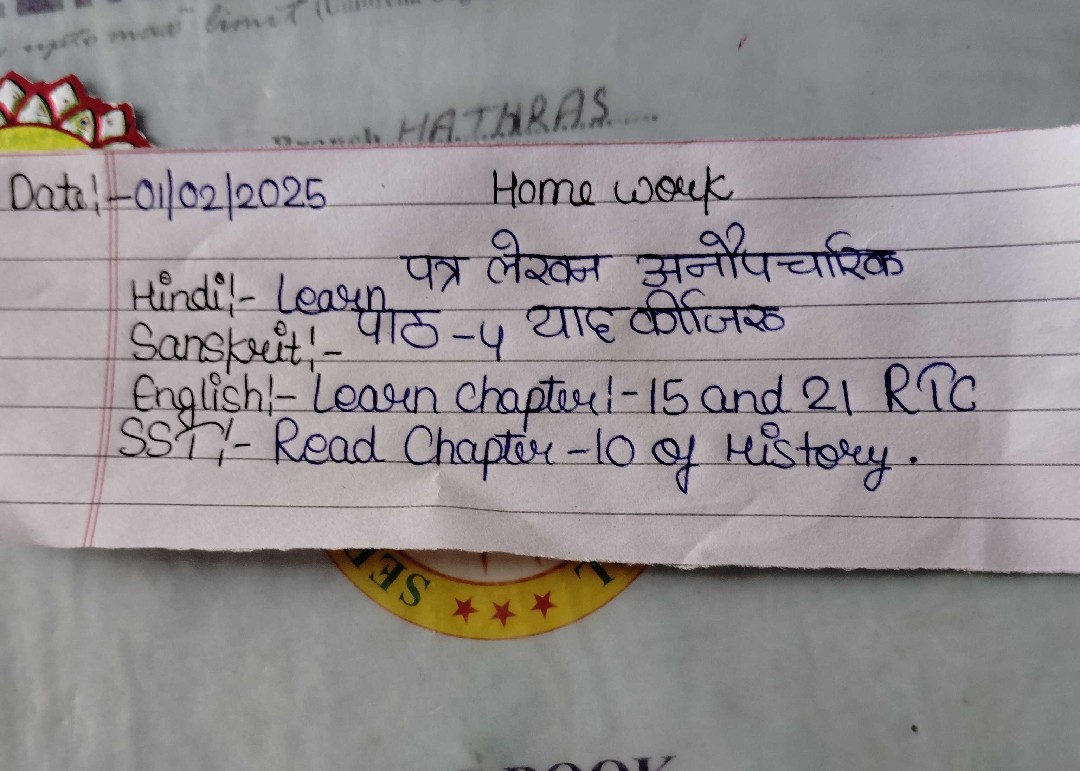 upto max limit
Branch HATHRAS
Date:- 01/02/2025 Home work
Hindi:- Learn पत्र लेखन अनौपचारिक
Sanskrit:- पाठ -4 याद कीजिए
English:- Learn Chapter:-15 and 21 RTC
SST:- Read Chapter -10 of History.
BOOK